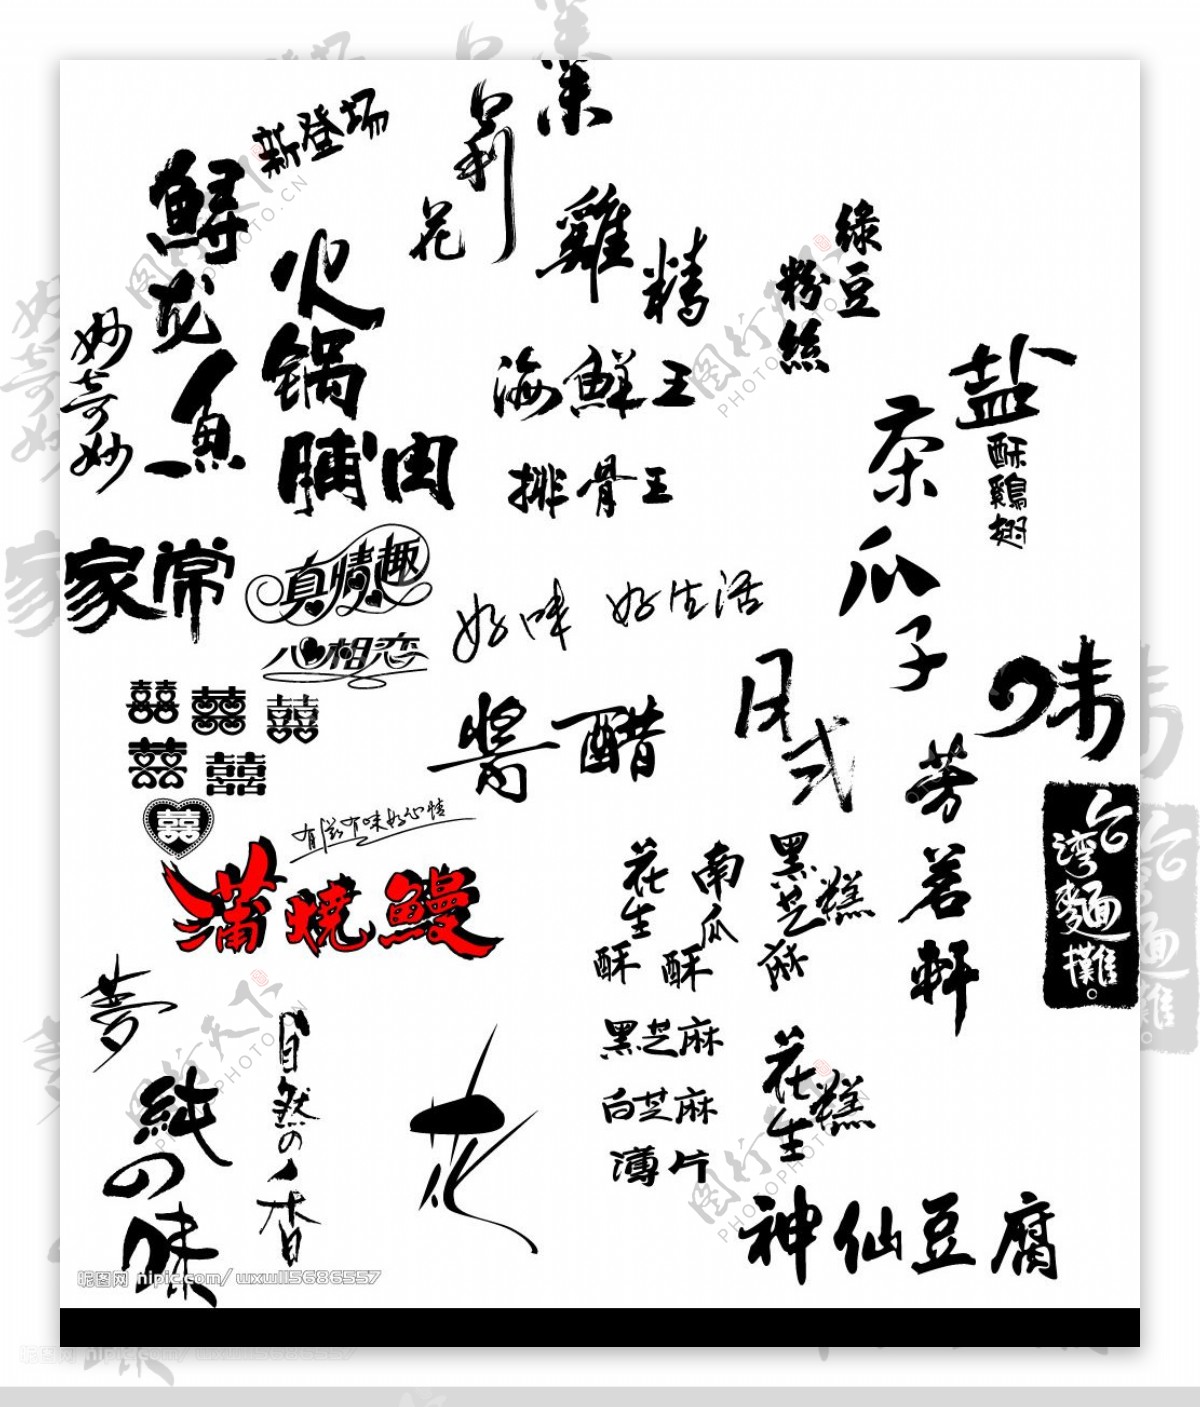 新登场
鲟龙鱼
妙奇妙
火锅
脯肉
花
雞精
綠豆
粉絲
海鮮王
排骨王
盐
酥鷄翅
茶瓜子
家常
真情趣
心相恋
好味 好生活
囍 囍 囍
囍 囍
囍
醬醋
日式
味
芳茗軒
台灣麵攤
有滋有味好心情
蒲燒鰻
花生酥
南瓜酥
黑芝麻糕
夢
純の味
自然の香
花
黑芝麻
白芝麻
薄片
花生糕
神仙豆腐
昵图网 nipic.com/wxwll5686557